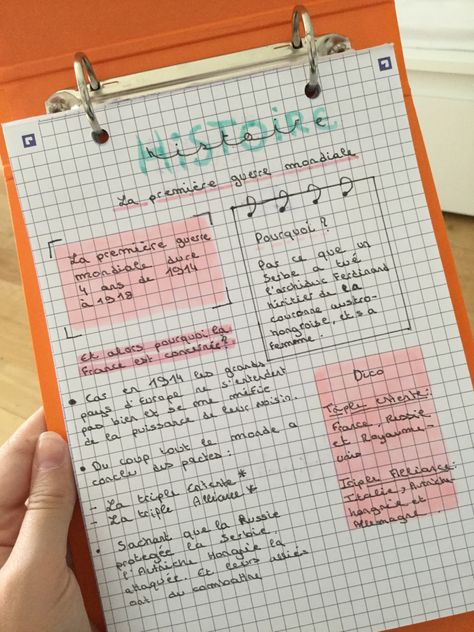 HISTOIRE
Histoire
La première guerre mondiale
La première guerre
mondiale dure
4 ans de 1914
à 1918
Pourquoi ?
Par ce que un
Serbe a tué
l'archiduc Ferdinand
héritier de la
couronne austro-
hongroise, et sa
femme.
Et alors pourquoi la
France est concernée ?
• Car en 1914 les grands
pays d'Europe ne s'entendent
pas bien et se méfie
de la puissance de leur voisin.
• Du coup tout le monde a
conclu des pactes :
- La triple Entente *
- La triple Alliance *
• Sachant que la Russie
protégée la Serbie
l'Autriche Hongrie la
attaquée. Et leurs alliés
ont du combattre
Dico
Triple entente :
France, Russie
et Royaume-
unis
Triple Alliance :
Italie, Autriche
hongrie et
Allemagne